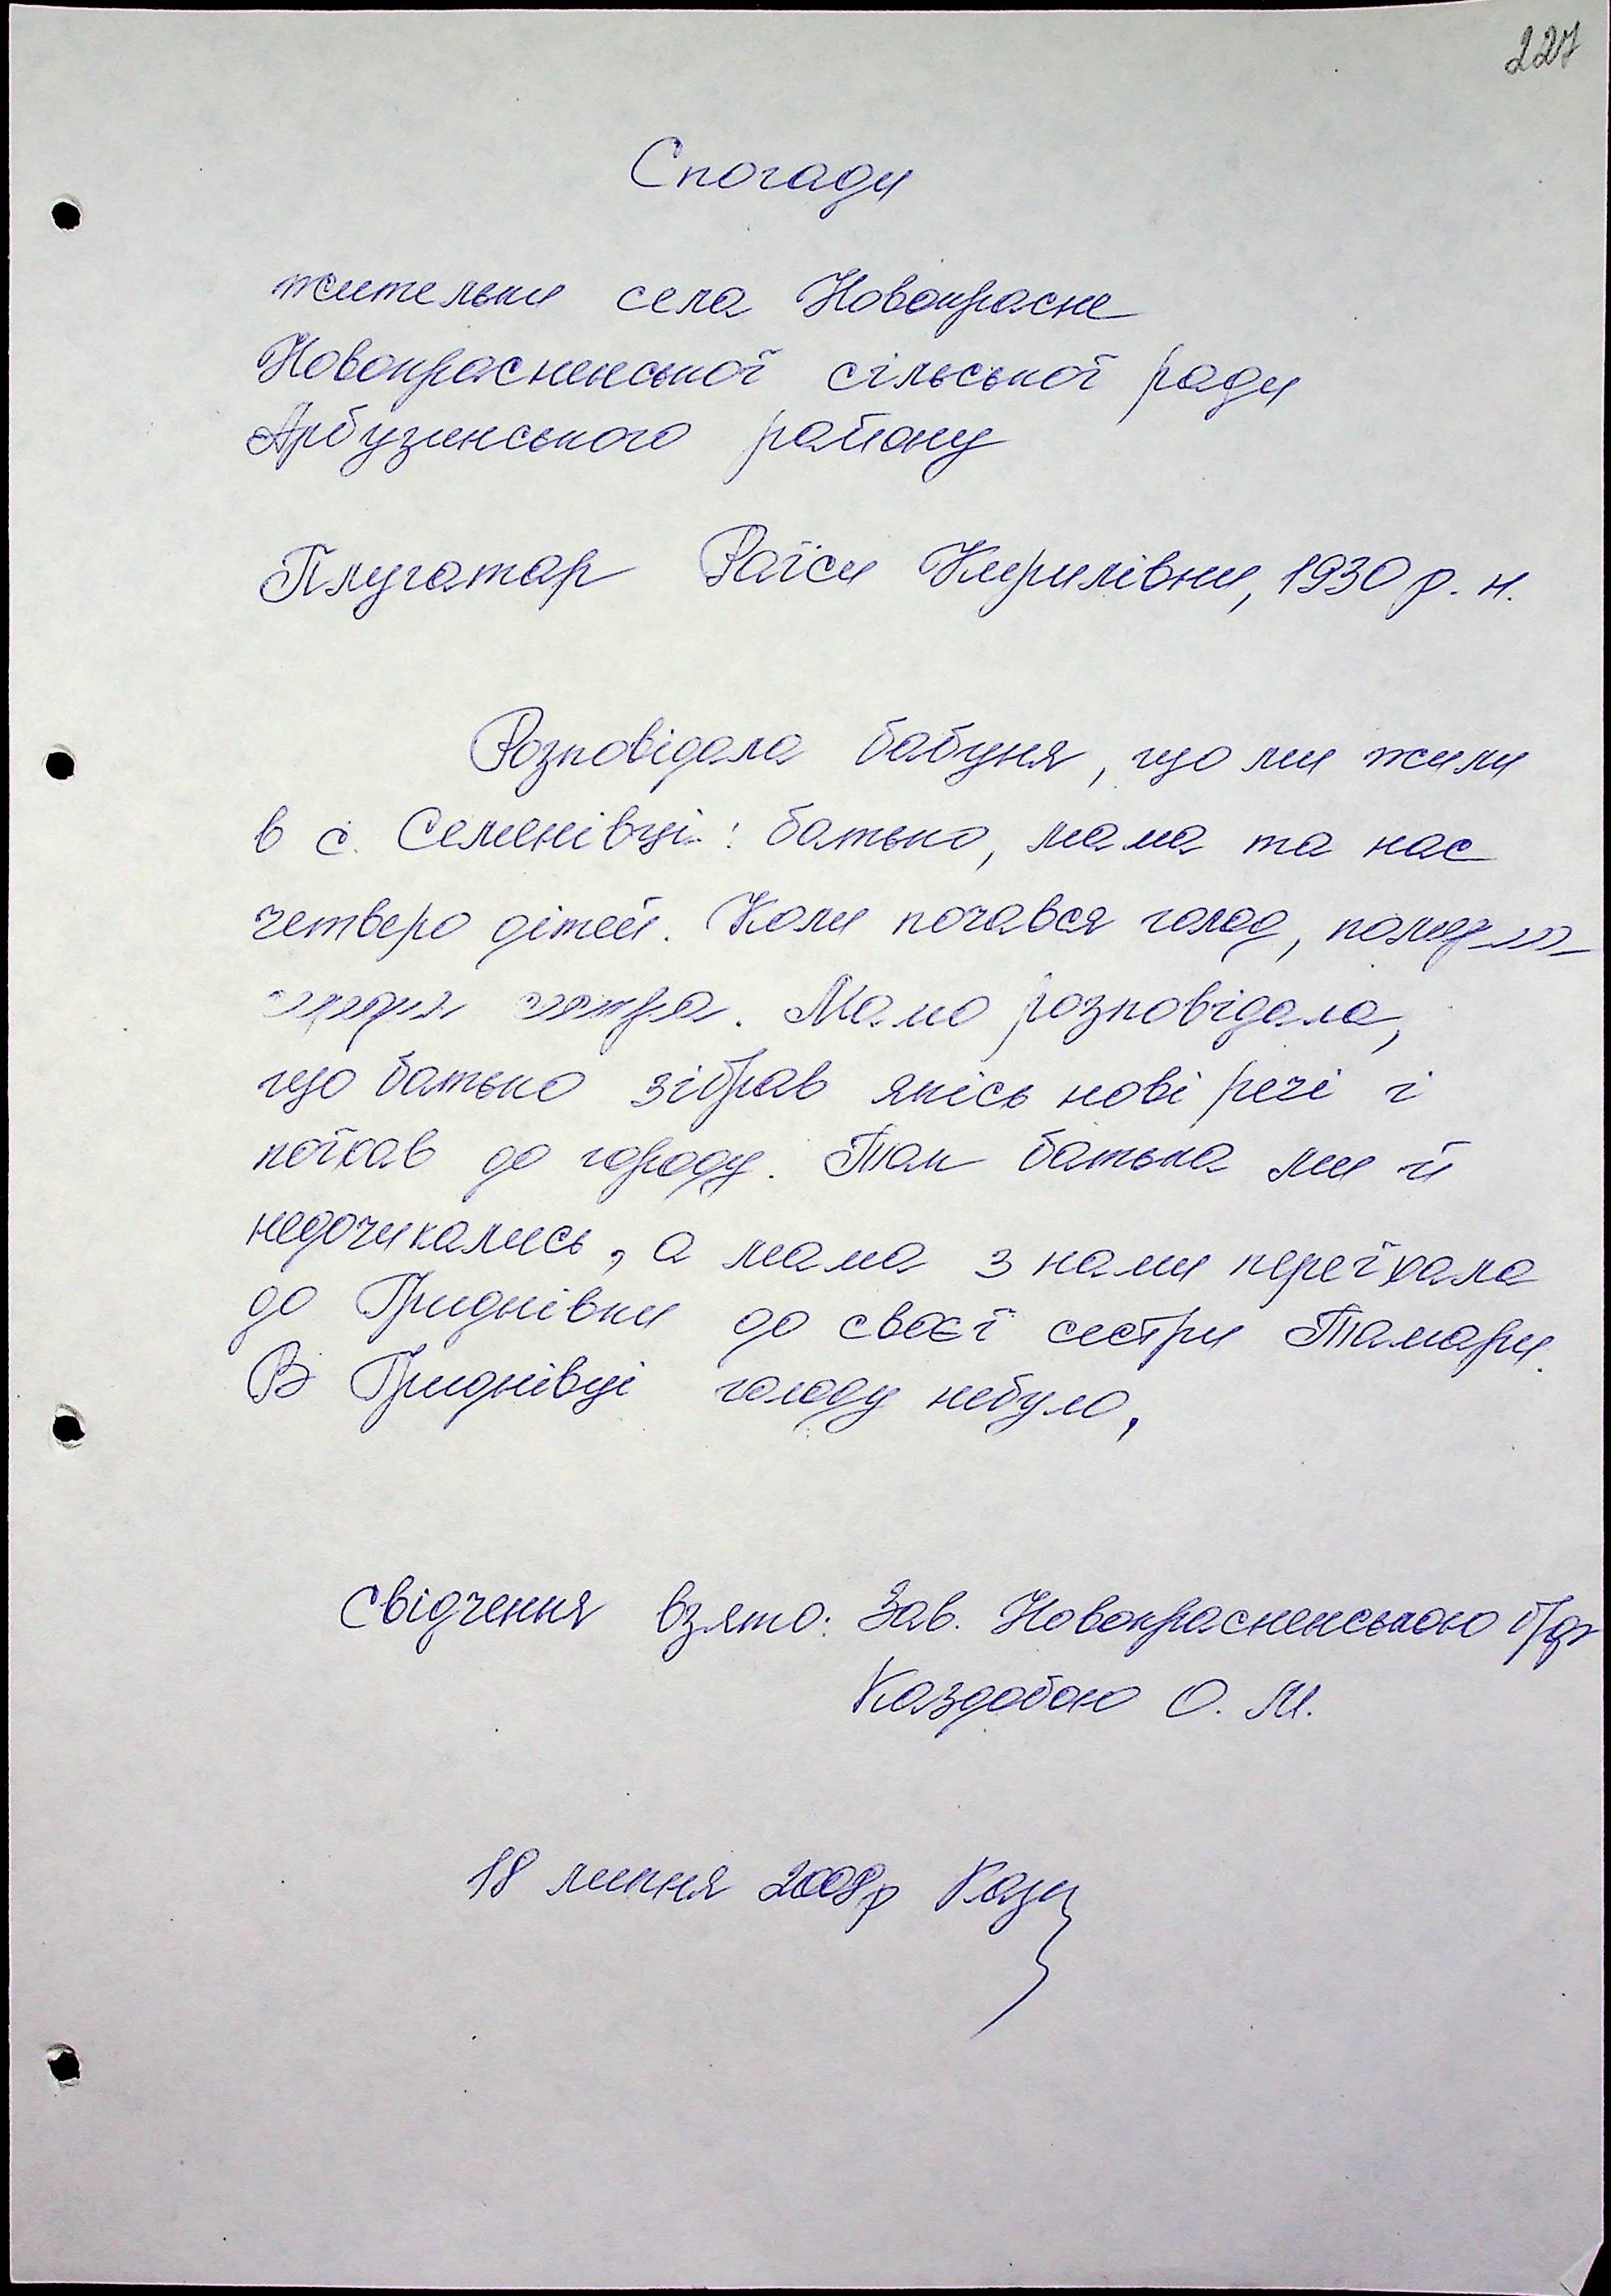 227
Спогади
жительки села Новокрасне
Новокрасненської сільської ради
Арбузинського району
Плугатар Раїси Кирилівни, 1930 р. н.
Розповідала бабуня, що ми жили
в с. Семенівці: батько, мама та нас
четверо дітей. Коли почався голод,
сестра. Мама розповідала,
що батько зібрав якісь нові речі і
поїхав до городу. Там батька ми й
недочикались, а мама з нами переїхала
до Гриднівки до своєї сестри Тамари.
В Гриднівці голоду небуло,
Свідчення взято: Зав. Новокрасненською б/ф
Каздобою О. М.
18 липня 2008р